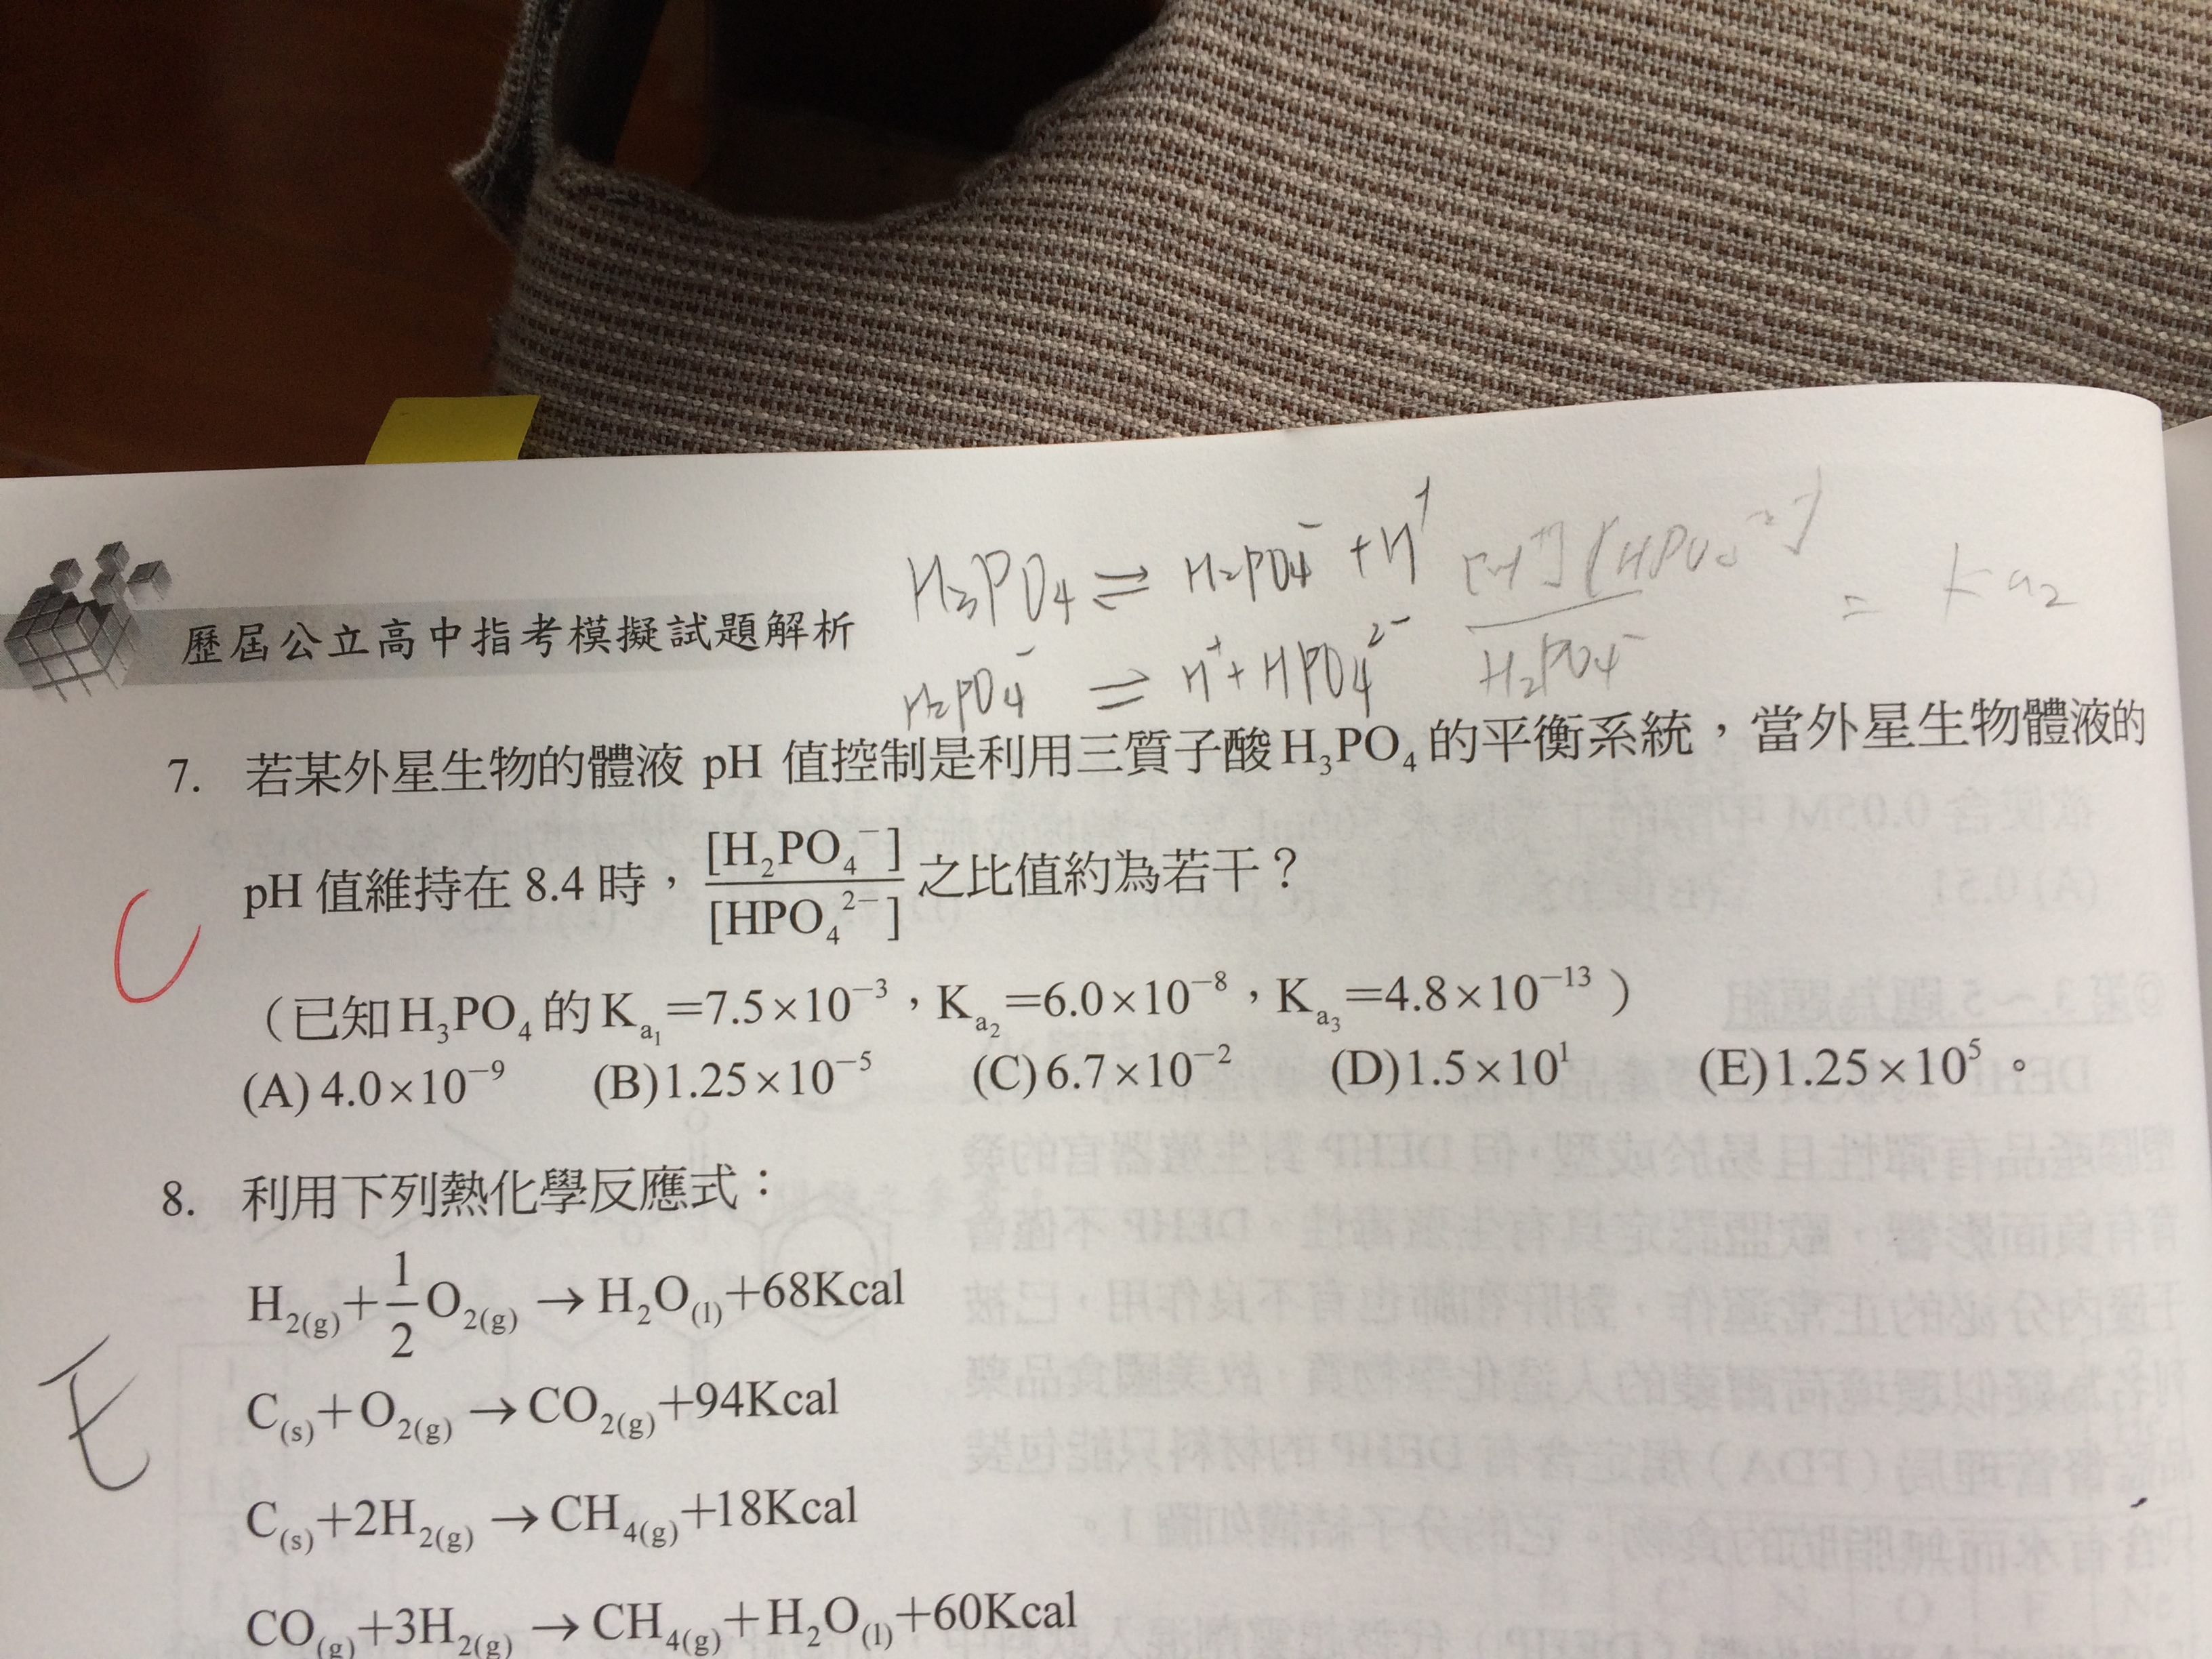 H₃PO₄ ⇌ H₂PO₄⁻ + H⁺ [H⁺][HPO₄⁻²] / H₂PO₄⁻ = Ka₂
H₂PO₄⁻ ⇌ H⁺ + HPO₄²⁻
歷屆公立高中指考模擬試題解析
7. 若某外星生物的體液 pH 值控制是利用三質子酸H₃PO₄的平衡系統，當外星生物體液的
pH 值維持在 8.4 時，[H₂PO₄⁻]/[HPO₄²⁻]之比值約為若干？
C
（已知H₃PO₄的Kₐ₁=7.5×10⁻³，Kₐ₂=6.0×10⁻⁸，Kₐ₃=4.8×10⁻¹³）
(A) 4.0×10⁻⁹ (B)1.25×10⁻⁵ (C)6.7×10⁻² (D)1.5×10¹ (E)1.25×10⁵。
8. 利用下列熱化學反應式：
H₂(g)+1/2O₂(g)→H₂O(l)+68Kcal
E
C(s)+O₂(g)→CO₂(g)+94Kcal
C(s)+2H₂(g)→CH₄(g)+18Kcal
CO(g)+3H₂(g)→CH₄(g)+H₂O(l)+60Kcal